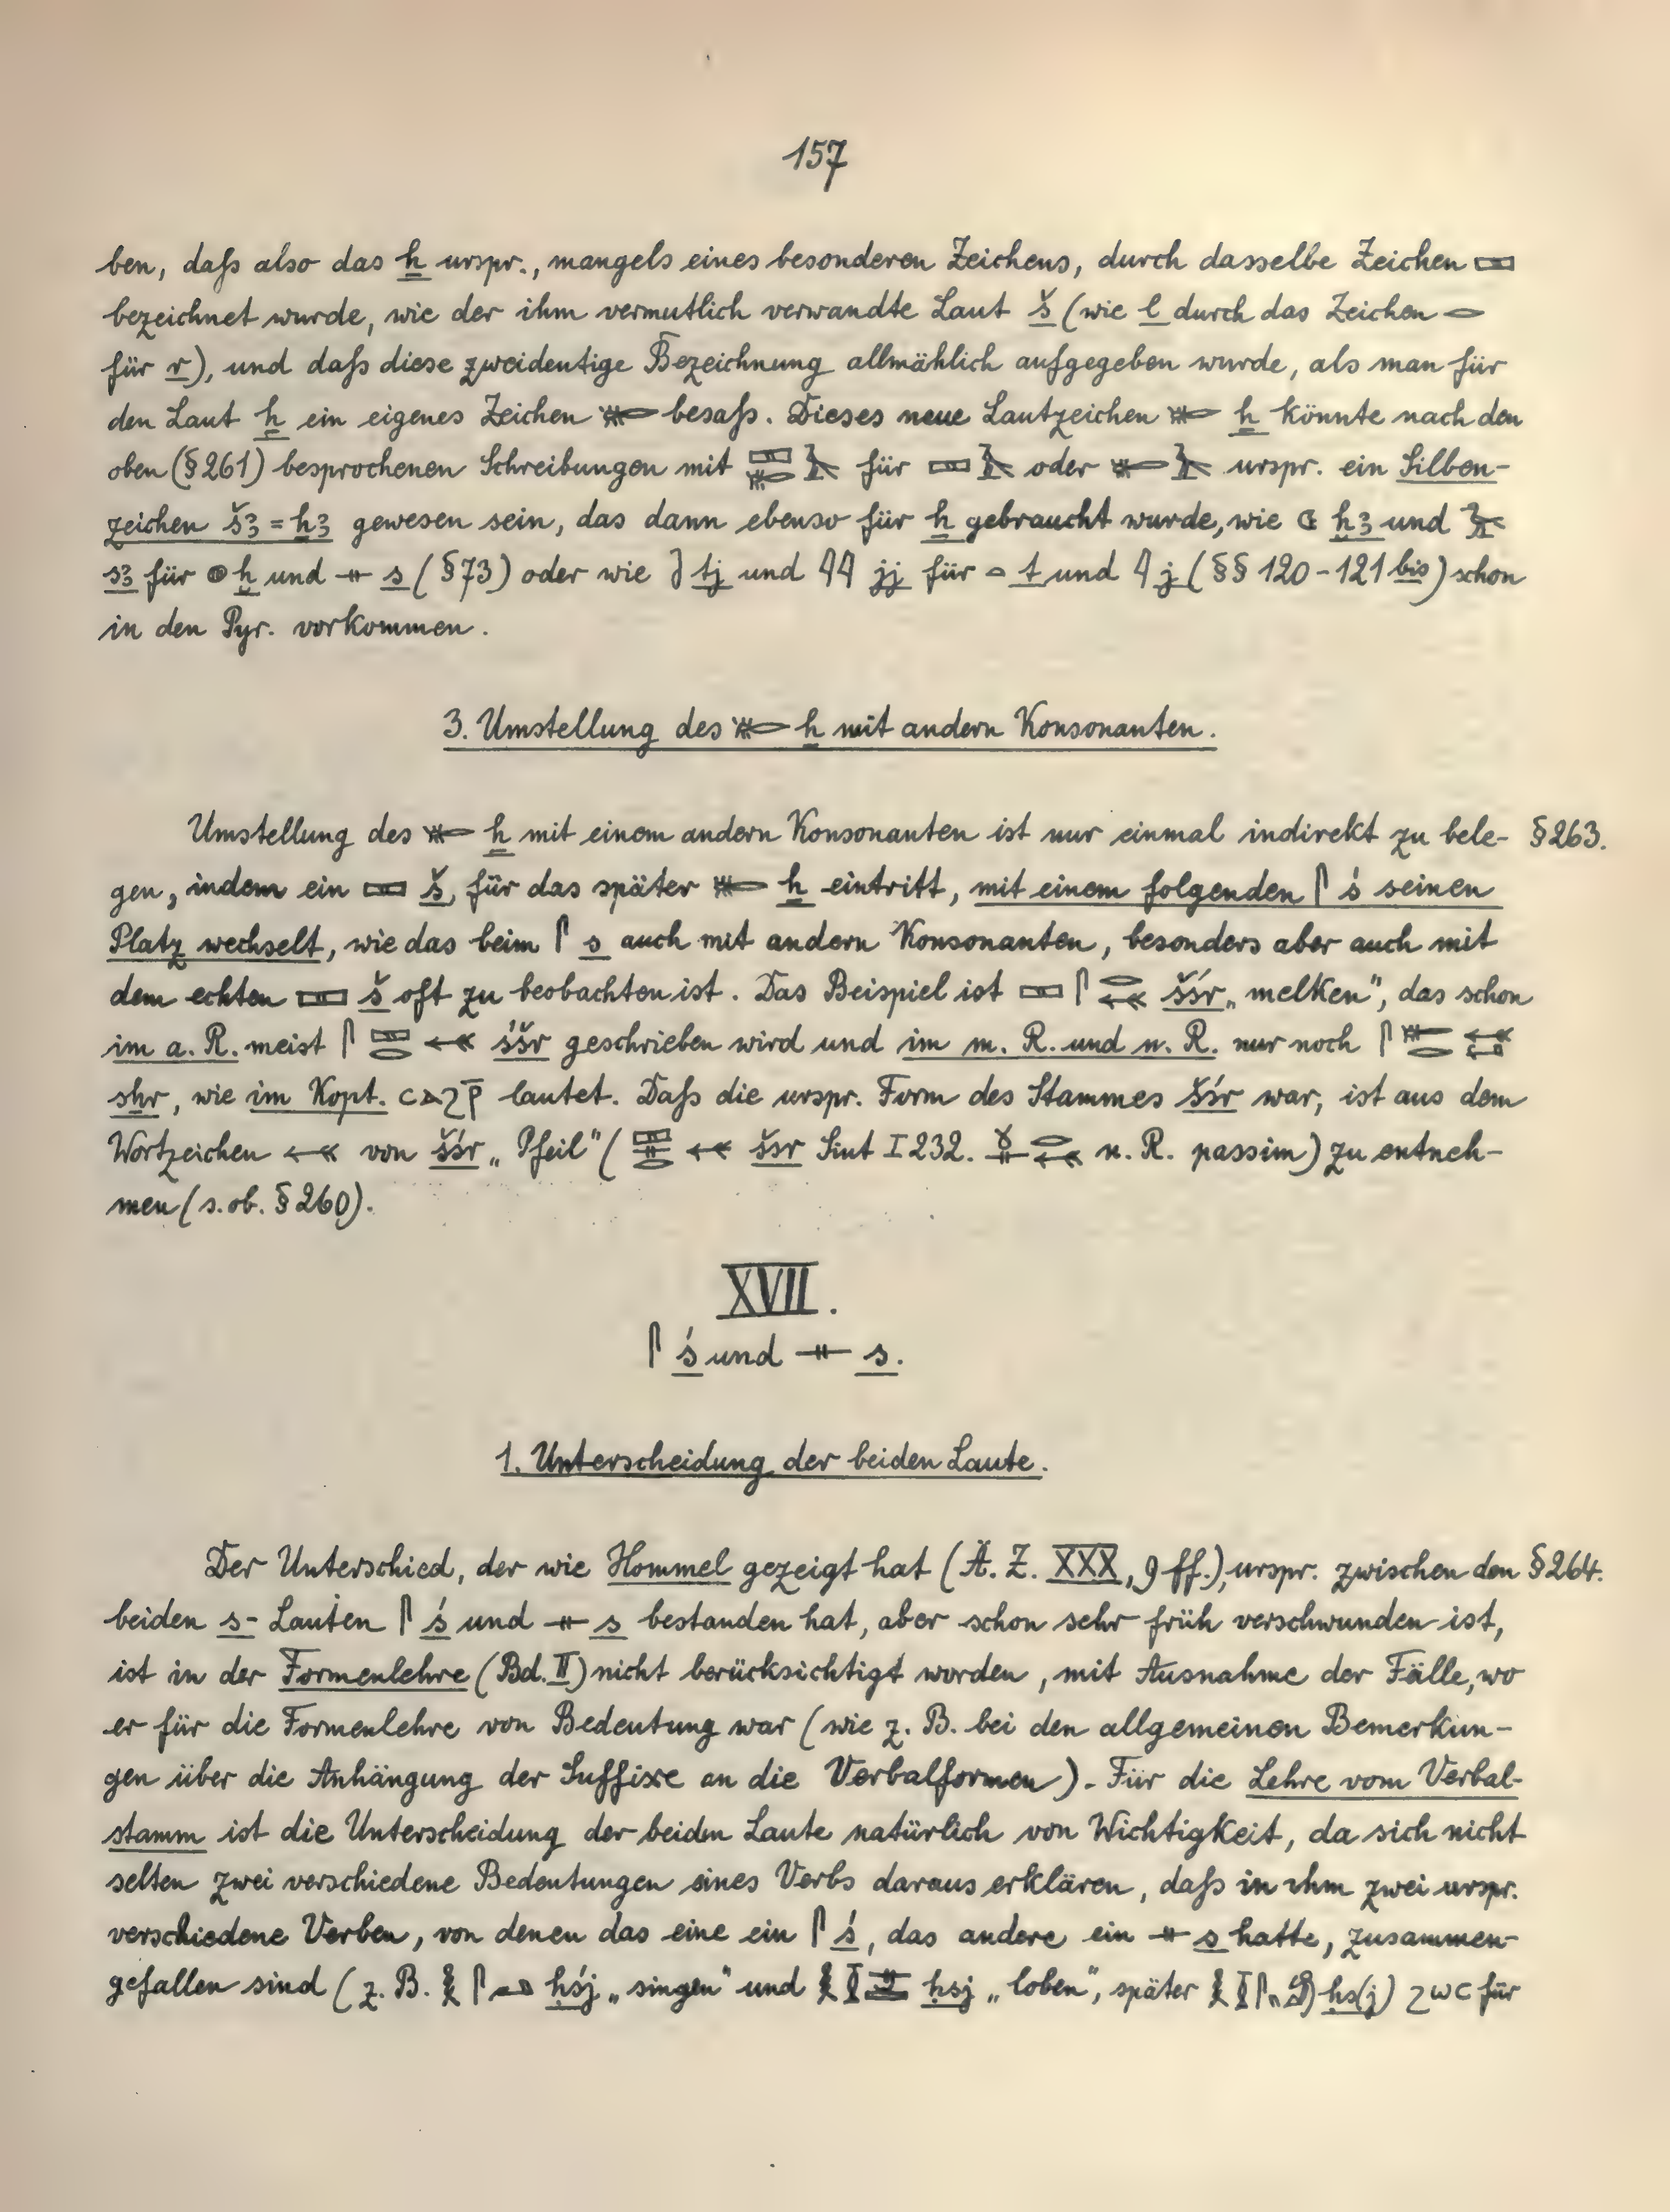 157
ben, daſs also das ẖ urspr., mangels eines besonderen Zeichens, durch dasselbe Zeichen 𓈙
bezeichnet wurde, wie der ihm vermutlich verwandte Laut š (wie l durch das Zeichen 𓂋
für r), und daſs diese zweideutige Bezeichnung allmählich aufgegeben wurde, als man für
den Laut ẖ ein eigenes Zeichen 𓄡 besaſs. Dieses neue Lautzeichen 𓄡 ẖ könnte nach den
oben (§ 261) besprochenen Schreibungen mit 𓈙𓄡𓄿 für 𓈙𓄿 oder 𓄡𓄿 urspr. ein Silben-
zeichen šꜣ = ẖꜣ gewesen sein, das dann ebenso für ẖ gebraucht wurde, wie ḫꜣ und
sꜣ für 𓐍 ḫ und 𓊃 s (§ 73) oder wie tj und 𓇌 jj für 𓏏 t und 𓇋 j (§§ 120-121 bis) schon
in den Pyr. vorkommen.
3. Umstellung des 𓄡 ẖ mit andern Konsonanten.
Umstellung des 𓄡 ẖ mit einem andern Konsonanten ist nur einmal indirekt zu bele- § 263.
gen, indem ein 𓈙 š, für das später 𓄡 ẖ eintritt, mit einem folgenden 𓋴 ś seinen
Platz wechselt, wie das beim 𓋴 s auch mit andern Konsonanten, besonders aber auch mit
dem echten 𓈙 š oft zu beobachten ist. Das Beispiel ist 𓈙𓋴𓂋𓌕 šśr „melken", das schon
im a. R. meist 𓋴𓈙𓂋𓌕 śšr geschrieben wird und im m. R. und n. R. nur noch 𓋴𓄡𓂋𓌕
sẖr, wie im Kopt. ⲥⲁϩⲣ̄ lautet. Daſs die urspr. Form des Stammes šśr war, ist aus dem
Wortzeichen 𓌕 von šśr „Pfeil" (𓈙𓊃𓂋𓌕 šsr Siut I 232. 𓎝𓊃𓂋𓌕 n. R. passim) zu entneh-
men (s. ob. § 260).
XVII.
𓋴 ś und 𓊃 s.
1. Unterscheidung der beiden Laute.
Der Unterschied, der wie Hommel gezeigt hat (Ä. Z. XXX, 9 ff.), urspr. zwischen den § 264.
beiden s- Lauten 𓋴 ś und 𓊃 s bestanden hat, aber schon sehr früh verschwunden ist,
ist in der Formenlehre (Bd. II) nicht berücksichtigt worden, mit Ausnahme der Fälle, wo
er für die Formenlehre von Bedeutung war (wie z. B. bei den allgemeinen Bemerkun-
gen über die Anhängung der Suffixe an die Verbalformen). Für die Lehre vom Verbal-
stamm ist die Unterscheidung der beiden Laute natürlich von Wichtigkeit, da sich nicht
selten zwei verschiedene Bedeutungen eines Verbs daraus erklären, daſs in ihm zwei urspr.
verschiedene Verben, von denen das eine ein 𓋴 ś, das andere ein 𓊃 s hatte, zusammen-
gefallen sind (z. B. 𓎛𓋴𓂝 ḥśj „singen" und ḥsj „loben", später ḥs(j) ϩⲱⲥ für